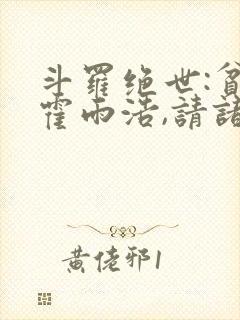 斗羅绝世:貧
霍雨浩,請諸
黃佬邪1